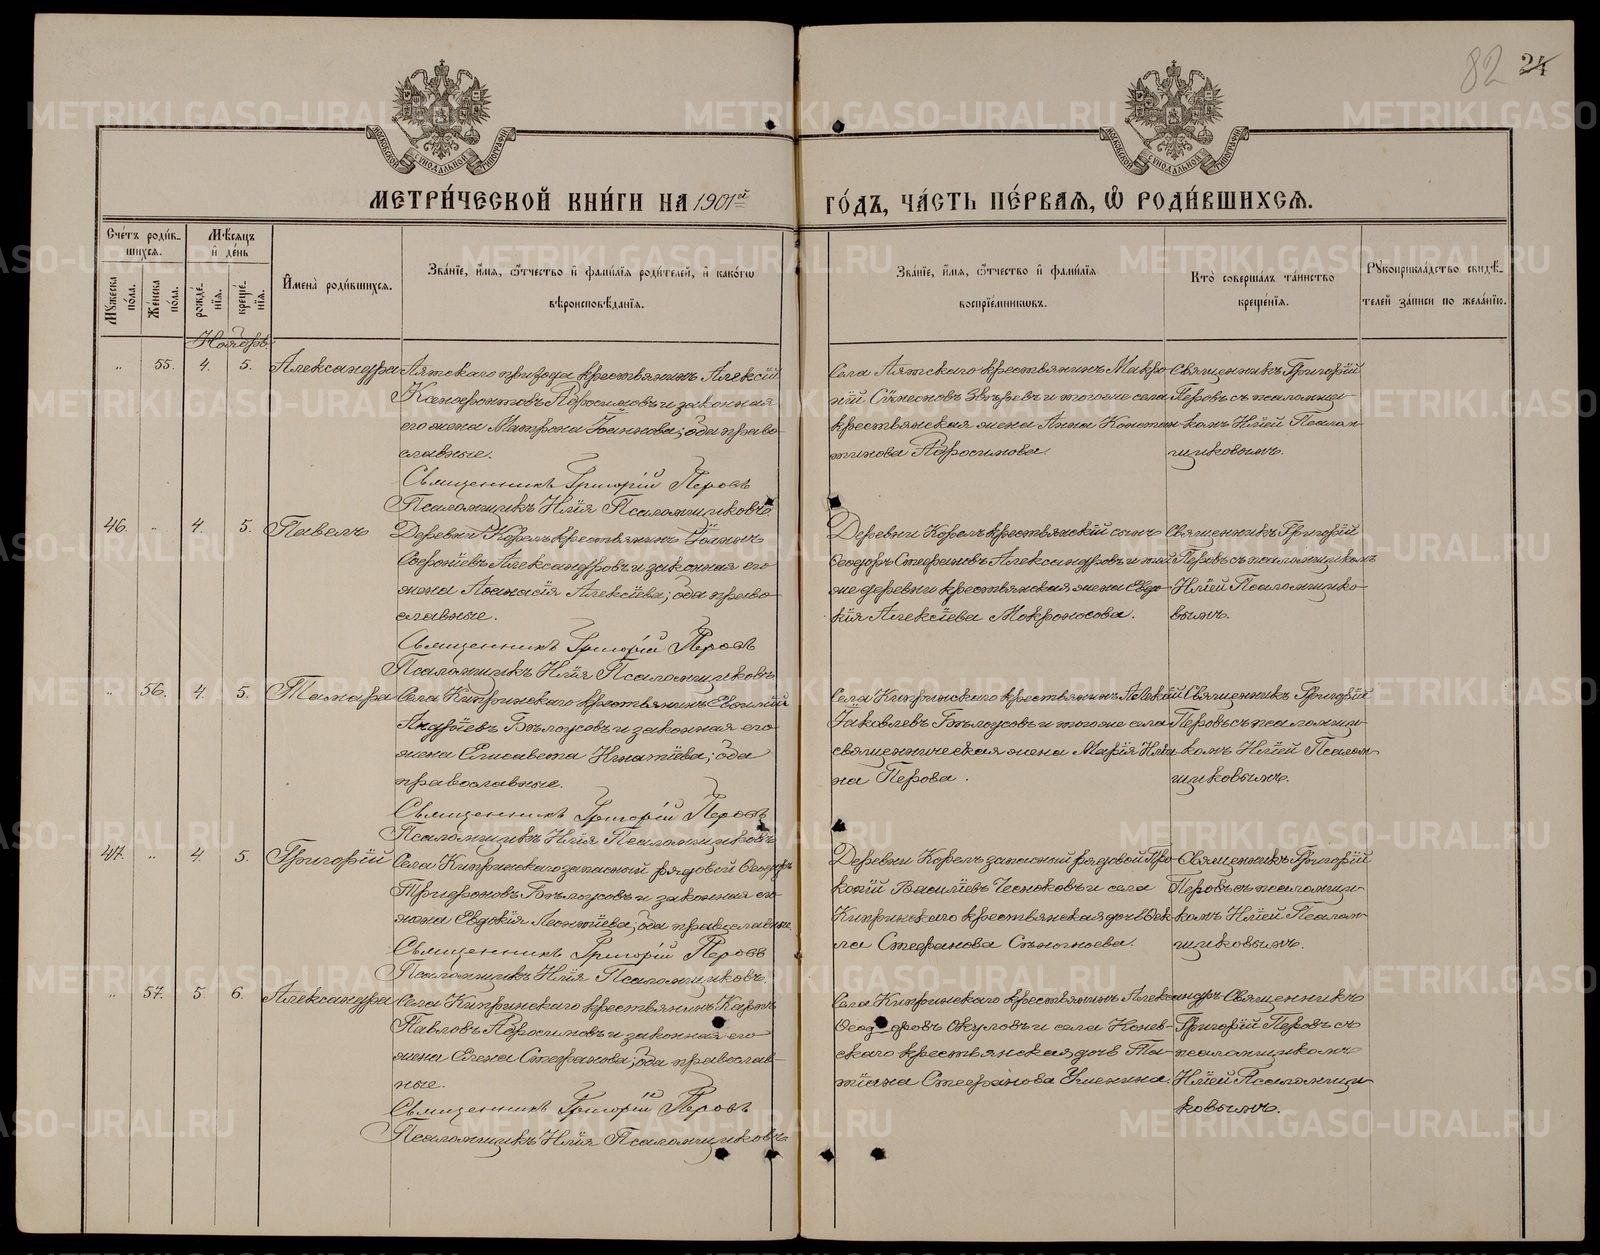 82 24
МОСКОВСКОЙ СѴНОДАЛЬНОЙ ТИПОГРАФІИ
МОСКОВСКОЙ СѴНОДАЛЬНОЙ ТИПОГРАФІИ
МЕТРИ́ЧЕСКОЙ КНИ́ГИ НА 1901й ГО́ДЪ, ЧА́СТЬ ПЕ́РВАѦ, Ѡ҆ РОДИ́ВШИХСѦ.
Сче́тъ роди́вшихсѧ.
Мꙋ́жеска по́ла.
Же́нска по́ла.
Мѣ́сѧцъ и҆ де́нь
рожде́нїѧ.
креще́нїѧ.
И҆мена̀ роди́вшихсѧ.
Зва́нїе, и҆́мѧ, ѻ҆́тчество и҆ фами́лїѧ роди́телей, и҆ како́гѡ вѣроисповѣ́данїѧ.
Зва́нїе, и҆́мѧ, ѻ҆́тчество и҆ фами́лїѧ воспрїе́мникѡвъ.
Кто̀ соверша́лъ та́инство креще́нїѧ.
Рꙋкоприкла́дство свидѣ́телей за́писи по жела́нїю.
Ноябрь
„ 55. 4. 5. Александра
Лятскаго прихода крестьянинъ Алексій
Ксенофонтовъ Абросимовъ и законная
его жена Матрона Іоаннова; оба право-
славные.
Священникъ Григорій Перовъ
Псаломщикъ Илія Псаломщиковъ
Села Лятскаго крестьянинъ Макро-
ній Сѵмеоновъ Звѣревъ и тогоже села
крестьянская жена Анна Констан-
тинова Абросимова.
Священникъ Григорій
Перовъ съ псаломщи-
комъ Иліей Псалом-
щиковымъ.
46. „ 4. 5. Павелъ
Деревни Корелъ крестьянинъ Іоаннъ
Софроніевъ Александровъ и законная его
жена Аѳанасія Алексіева; оба право-
славные.
Священникъ Григорій Перовъ
Псаломщикъ Илія Псаломщиковъ
Деревни Корелъ крестьянскій сынъ
Ѳеодоръ Стефановъ Александровъ и той-
же деревни крестьянская жена Евдо-
кія Алексіева Мокроносова.
Священникъ Григорій
Перовъ съ псаломщикомъ
Иліей Псаломщико-
вымъ.
„ 56. 4. 5. Тамара
Села Кипринскаго крестьянинъ Евѳимій
Андреевъ Бѣлоусовъ и законная его
жена Елисавета Игнатіева; оба
православные.
Священникъ Григорій Перовъ
Псаломщикъ Илія Псаломщиковъ
Села Кипринскаго крестьянинъ Алексій
Іаковлевъ Бѣлоусовъ и тогоже села
священническая жена Марія Ильи-
на Перова.
Священникъ Григорій
Перовъ съ псаломщи-
комъ Иліей Псалом-
щиковымъ.
47. „ 4. 5. Григорій
Села Кипринскаго запасный рядовой Ѳеодоръ
Трифоновъ Бѣлоусовъ и законная его
жена Евдокія Леонтіева; оба православные.
Священникъ Григорій Перовъ
Псаломщикъ Илія Псаломщиковъ
Деревни Корелъ запасный рядовой Про-
копій Василіевъ Чесноковъ и села
Кипринскаго крестьянская дочь Ѳек-
ла Стефанова
Священникъ Григорій
Перовъ съ псаломщи-
комъ Иліей Псалом-
щиковымъ.
„ 57. 5. 6. Александра
Села Кипринскаго крестьянинъ Карпъ
Павловъ Абросимовъ и законная его
жена Елена Стефанова; оба православ-
ные.
Священникъ Григорій Перовъ
Псаломщикъ Илія Псаломщиковъ
Села Кипринскаго крестьянинъ Александръ
Ѳеодоровъ Окуловъ и села Конев-
скаго крестьянская дочь Та-
тіана Стефанова
Священникъ
Григорій Перовъ съ
псаломщикомъ
Иліей Псаломщи-
ковымъ.
METRIKI.GASO-URAL.RU